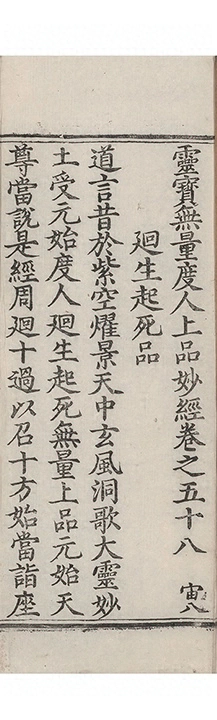 靈寶無量度人上品妙經卷之五十八 寅八
廻生起死品
道言昔於紫空燿景天中玄風洞歌大靈妙
土受元始度人廻生起死無量上品元始天
尊當說是經周廻十過以召十方始當詣座